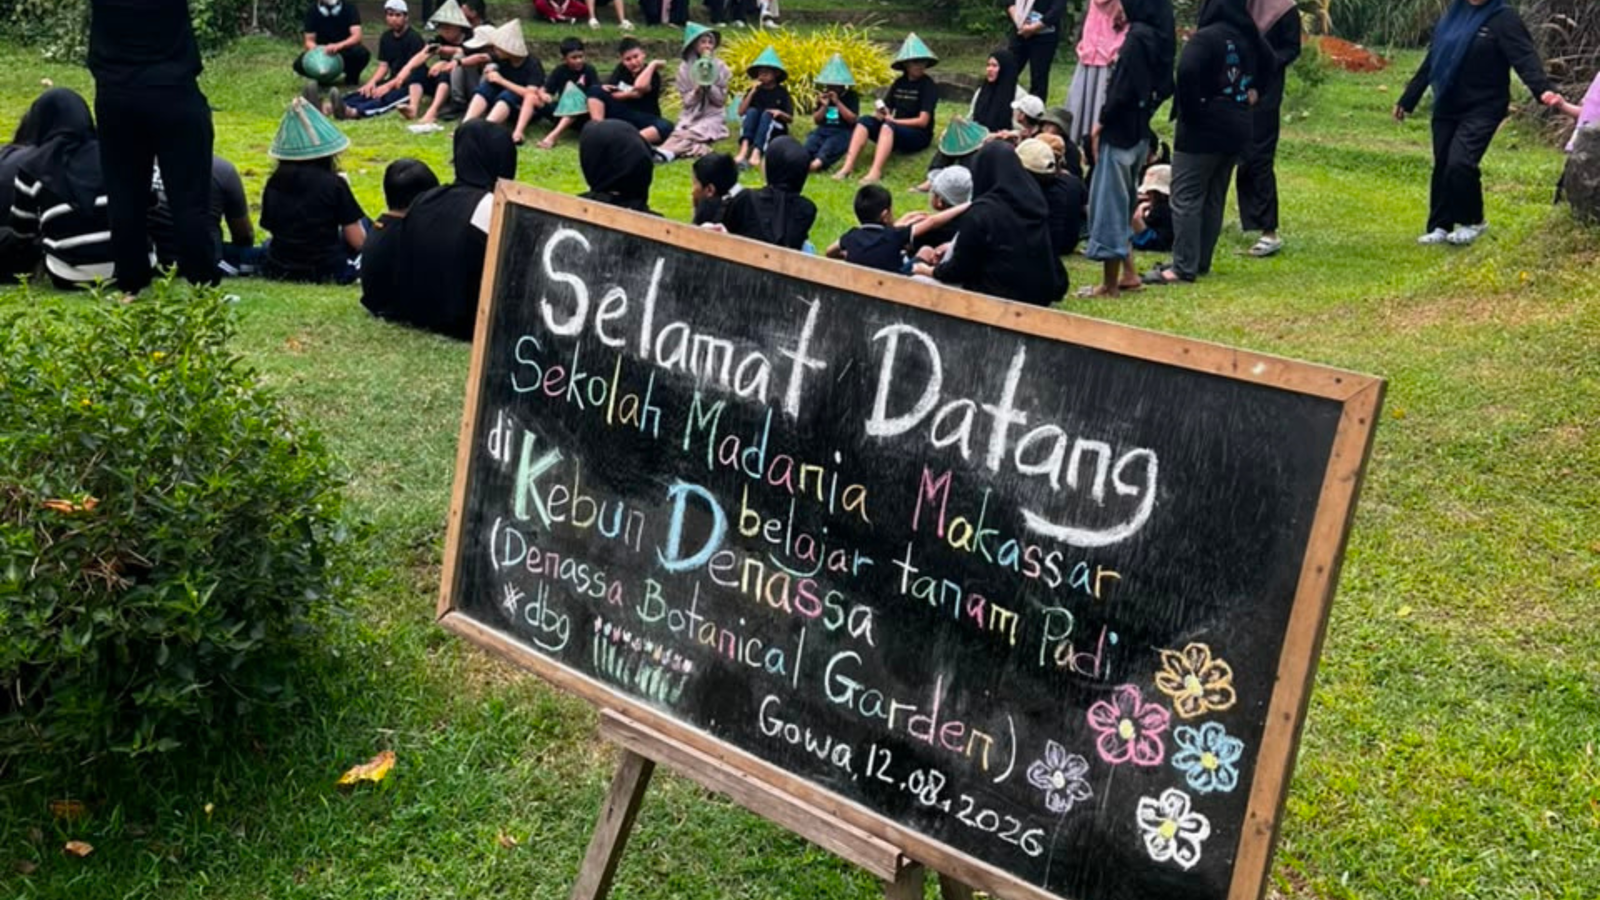 Selamat Datang
Sekolah Madania Makassar
di Kebun Denassa belajar tanam Padi
(Denassa Botanical Garden)
*dbg
Gowa, 12.08.2026